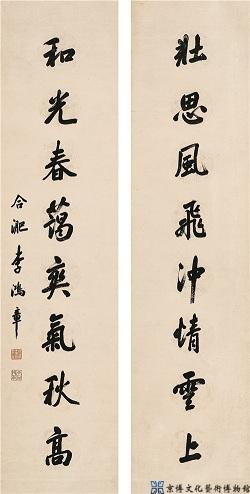 壯思風飛沖情雲上
和光春藹爽氣秋高
合淝李鴻章
京博文化藝術博物館